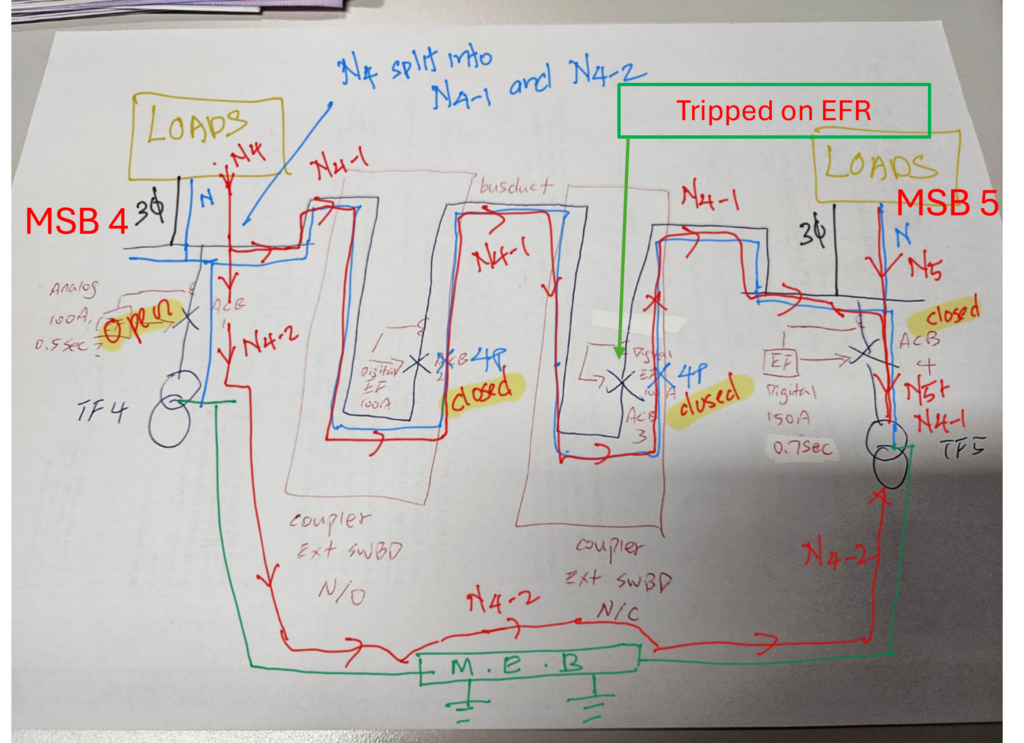 N4 split into
N4-1 and N4-2
Tripped on EFR
LOADS
LOADS
N4
N4-1
busduct
N4-1
MSB 4
3ϕ
N
MSB 5
3ϕ
N
N4-1
N5
Analog
100A
0.5sec
open
ACB
N4-2
closed
ACB
4
Digital
EF
100A
4P
closed
4P
closed
ACB
3
EF
Digital
150A
0.7sec
N5+
N4-1
TF4
TF5
coupler
Ext SWBD
N/O
coupler
Ext SWBD
N/C
N4-2
N4-2
M.E.B